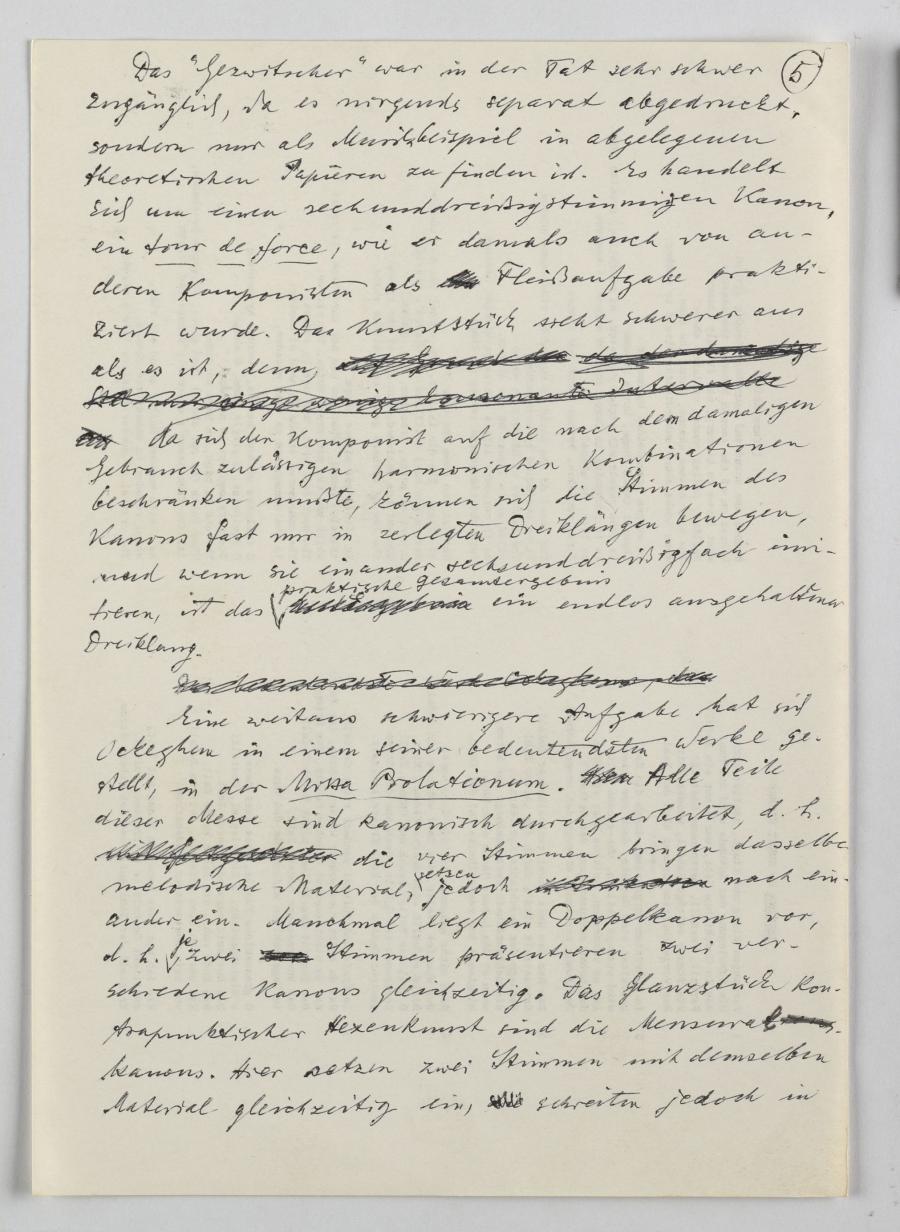 Das "Gezwitscher" war in der Tat sehr schwer 5
zugänglich, da es nirgends separat abgedruckt,
sondern nur als Musikbeispiel in abgelegenen
theoretischen Papieren zu finden ist. Es handelt
sich um einen sechsunddreißigstimmigen Kanon,
ein tour de force, wie er damals auch von an-
deren Komponisten als Fleißaufgabe prakti-
ziert wurde. Das Kunststück sieht schwerer aus
als es ist, denn, da der damalige
konsonante Intervalle
da sich der Komponist auf die nach dem damaligen
Gebrauch zulässigen harmonischen Kombinationen
beschränken mußte, können sich die Stimmen des
Kanons fast nur in zerlegten Dreiklängen bewegen,
und wenn sie einander sechsunddreißigfach imi-
praktische Gesamtergebnis
tieren, ist das ein endlos ausgehaltener
Dreiklang.
Eine weitaus schwierigere Aufgabe hat sich
Ockeghem in einem seiner bedeutendsten Werke ge-
stellt, in der Missa Prolationum. Alle Teile
dieser Messe sind kanonisch durchgearbeitet, d. h.
die vier Stimmen bringen dasselbe
setzen
melodische Material, jedoch nach ein-
ander ein. Manchmal liegt ein Doppelkanon vor,
je
d. h. zwei Stimmen präsentieren zwei ver-
schiedene Kanons gleichzeitig. Das Glanzstück kon-
trapunktischer Hexenkunst sind die Mensural-
kanons. Hier setzen zwei Stimmen mit demselben
Material gleichzeitig ein, schreiten jedoch in